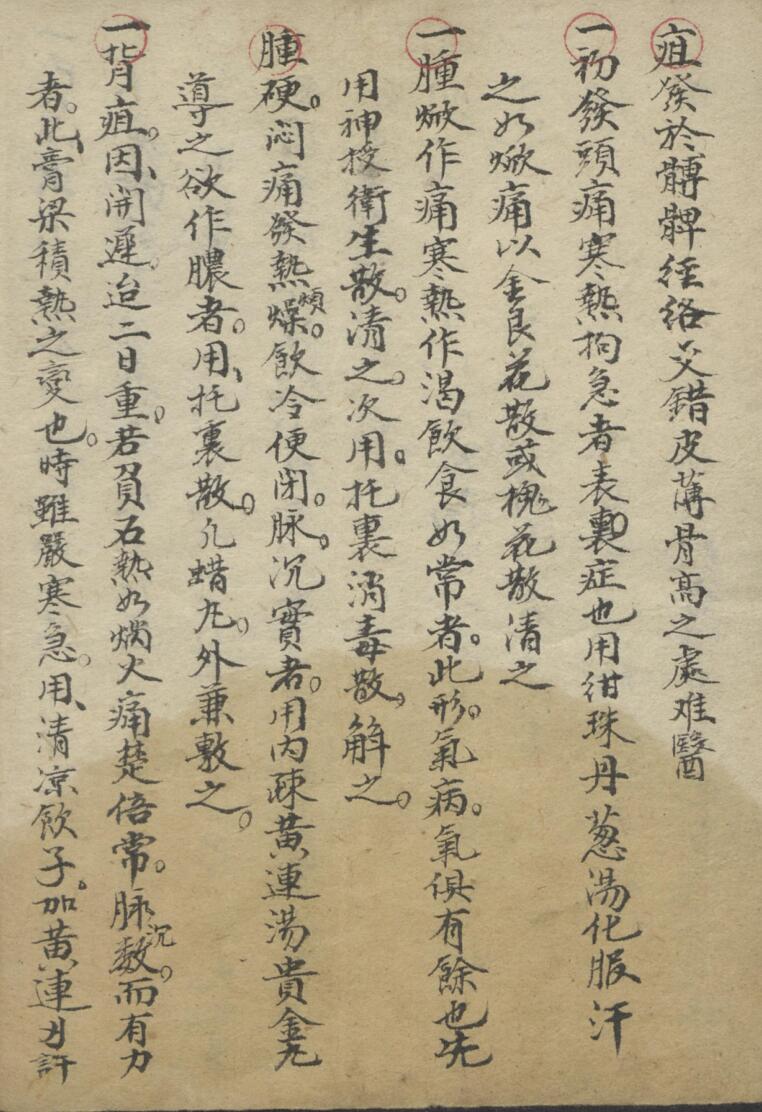 疽發於髆髀徑絡交錯皮薄骨高之處难醫
一初發頭痛寒熱拘急者表裏症也用紺珠丹葱湯化服汗
之如焮痛以金艮花散或槐花散清之
一腫焮作痛寒熱作渴飲食如常者。此形。氣病。氣俱有餘也先
用神授衛生散。清之。次用。托裏消毒散。解之。
腫硬。悶痛發熱煩燥。飲冷便閉。脉。沉實者。用内疎黄連湯貴金九
導之欲作膿者。用、托裏散。凢蜡九。外兼敷之。
一背疽。因、開遲迨二日重。若負石熱如燭火痛楚倍常。脉沉數。而有力
者。此、膏梁積熱之變也。時雖嚴寒急。用、清凉飲子。加黄連